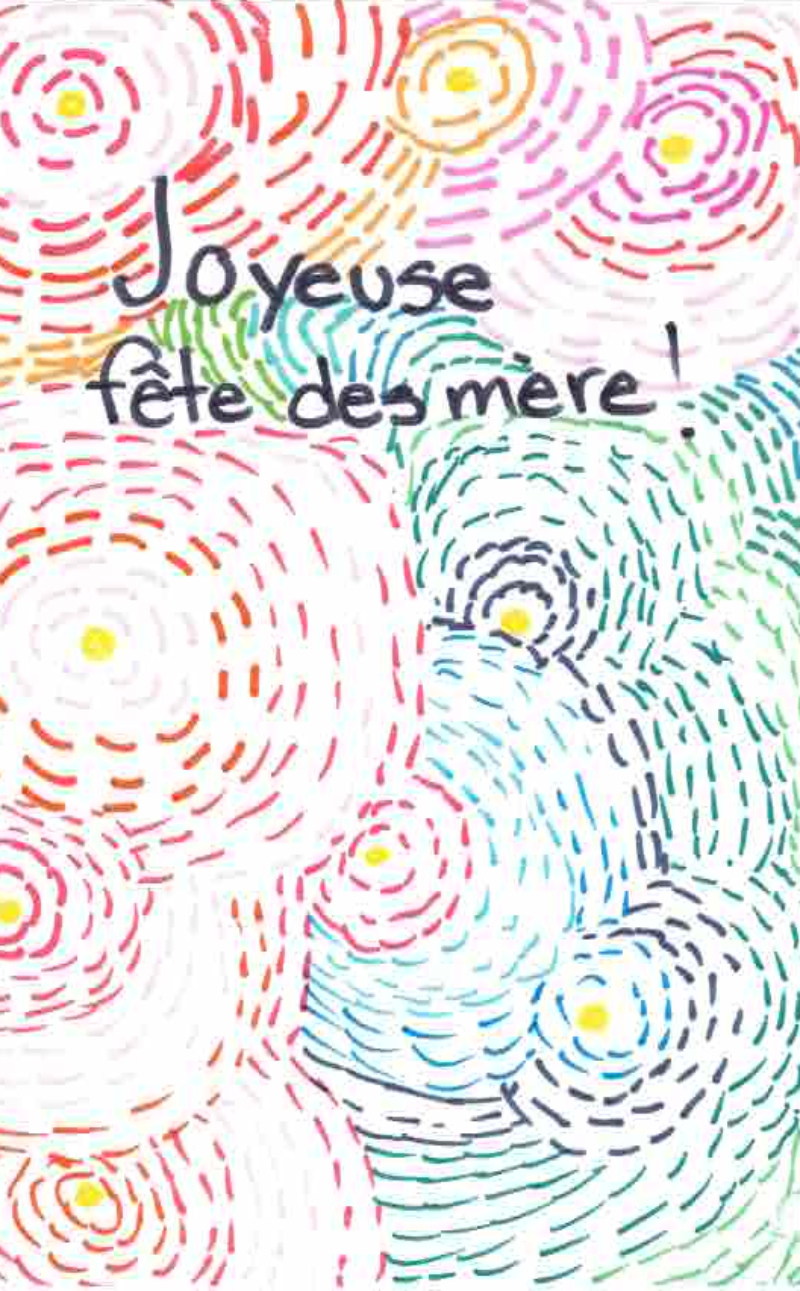 Joyeuse
fête des mere!